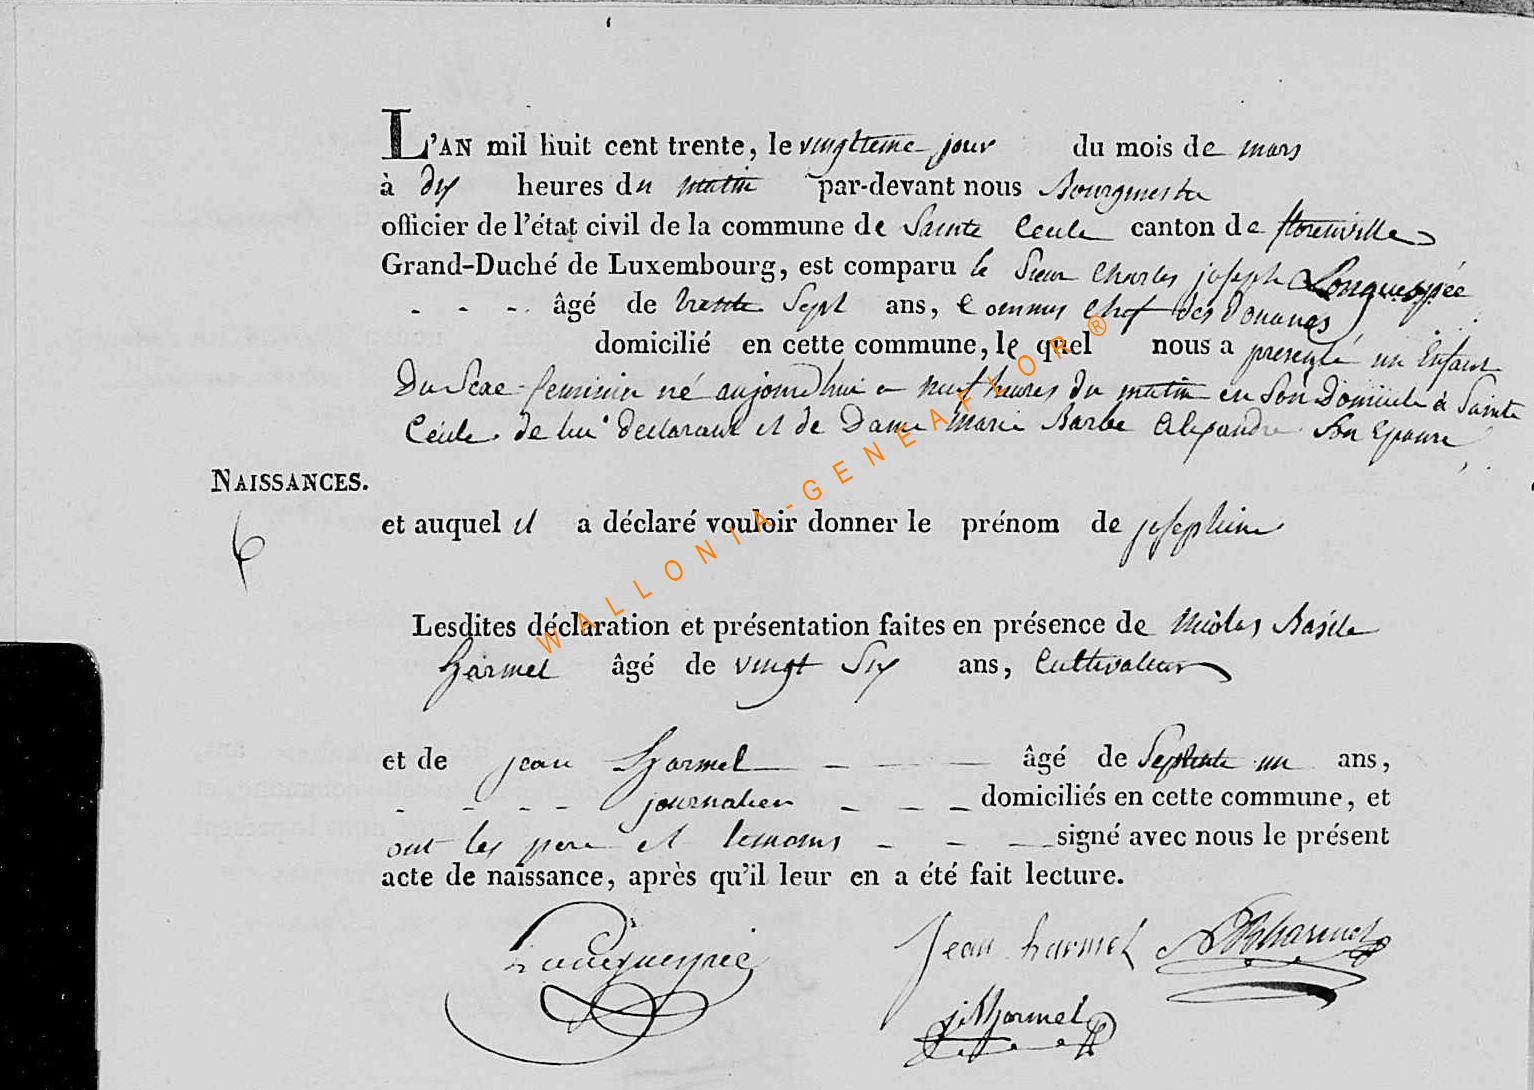 L'AN mil huit cent trente, le vingtieme jour du mois de mars
à dix heures du matin par-devant nous Bourgmestre
officier de l'état civil de la commune de Sainte Cecile canton de florenville
Grand-Duché de Luxembourg, est comparu le Sieur Charles joseph Longuespée
- - - âgé de trente Sept ans, Commis Chef des Douanes
domicilié en cette commune, le quel nous a presenté un Enfant
Du Sexe feminin né aujourd'hui a neuf heures du matin en Son Domicile à Sainte
Cécile de lui declarant et de Dame Marie Barbe Alexandre Son Epouse
NAISSANCES.
6
et auquel il a déclaré vouloir donner le prénom de josephine
Lesdites déclaration et présentation faites en présence de Nicolas Basile
harmel âgé de vingt Six ans, Cultivateur
et de jean harmel - - - âgé de Septente un ans,
- - - - journalier - - - domiciliés en cette commune, et
ont les pere et temoins - - - signé avec nous le présent
acte de naissance, après qu'il leur en a été fait lecture.
Longuespée
Jean harmel
harmel
harmel
WALLONIA-GENEAFLOR®